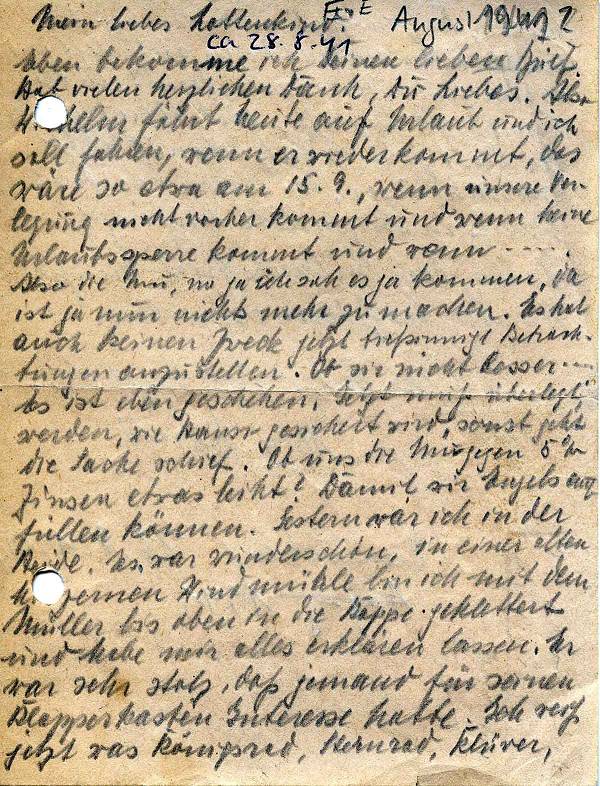 Mein liebes Lottenkind! F.E August 1941?
ca 28.8.41
Eben bekomme ich Deinen lieben Brief.
Hab vielen herzlichen Dank, Du Liebes. Also
Wilhelm fährt heute auf Urlaub und ich
soll fahren, wenn er wiederkommt, das
wäre so etwa am 15.9., wenn unsere Ver-
legung nicht vorher kommt und wenn keine
Urlaubssperre kommt und wenn .....
Also die Mu, na ja ich sah es ja kommen, da
ist ja nun nichts mehr zu machen. Es hat
auch keinen Zweck jetzt tiefsinnige Betrach-
tungen anzustellen. Ob sie nicht besser....
Es ist eben geschehen. Jetzt muß überlegt
werden, wie gesichert wird, sonst geht
die Sache schief. Ob uns die Mu gegen 5%
Zinsen etwas leiht? Damit wir
füllen können. Gestern war ich in der
Heide. Es war wunderschön, in einer alten
Windmühle bin ich mit dem
Müller bis oben in die Kappe geklettert
und habe mir alles erklären lassen. Er
war sehr stolz, daß jemand für seinen
Klapperkasten Interesse hatte. Ich weiß
jetzt was Königsrad, Sternrad, Klüver,